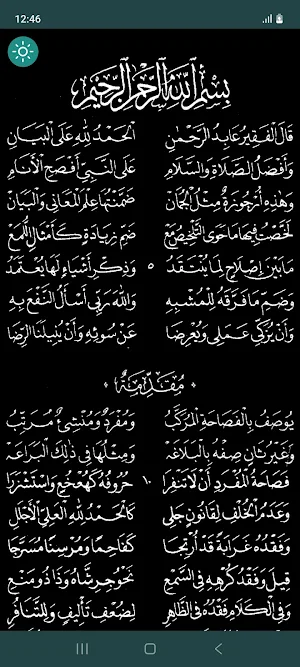 12:46
بِسْمِ اللَّهِ الرَّحْمَنِ الرَّحِيمِ
قَالَ الْفَقِيرُ عَابِدُ الرَّحْمَنِ الْحَمْدُ لِلَّهِ عَلَى الْبَيَانِ
وَأَفْضَلُ الصَّلَاةِ وَالسَّلَامِ عَلَى النَّبِيِّ أَفْصَحِ الْأَنَامِ
وَهَذِهِ أُرْجُوزَةٌ مِثْلُ الْجُمَانِ ضَمَّنْتُهَا عِلْمَ الْمَعَانِي وَالْبَيَانِ
لَخَّصْتُ فِيهَا مَا حَوَى التَّلْخِيصُ مَعْ ضَمِّ زِيَادَةٍ كَأَمْثَالِ اللُّمَعْ
مَا بَيْنَ إِصْلَاحٍ لِمَا يُنْتَقَدُ ٥ وَذِكْرِ أَشْيَاءٍ لَهَا يُعْتَمَدُ
وَضَمِّ مَا فَرَّقَهُ لِلْمُشْبِهِ وَاللَّهَ رَبِّي أَسْأَلُ النَّفْعَ بِهِ
وَأَنْ يُزَكِّي عَمَلِي وَيُعْرِضَا عَنْ سُوئِهِ وَأَنْ يُنِيلَنَا الرِّضَا
مُقَدِّمَةٌ
يُوصَفُ بِالْفَصَاحَةِ الْمُرَكَّبُ وَمُفْرَدٌ وَمُنْشِئٌ مُرَتِّبُ
وَغَيْرُ ثَانٍ صِفْهُ بِالْبَلَاغَهْ وَمِثْلُهَا فِي ذَلِكَ الْبَرَاعَهْ
فَصَاحَةُ الْمُفْرَدِ أَنْ لَا تَنْفِرَا ١٠ حُرُوفُهُ كَهُعْخُعٍ وَاسْتَشْزَرَا
وَعَدَمُ الْخُلْفِ لِقَانُونٍ جَلِي كَالْحَمْدُ لِلَّهِ الْعَلِيِّ الْأَجْلَلِ
وَفَقْدُهُ غَرَابَةً قَدْ أُرْتِجَا كَفَاحِمًا وَمَرْسِنًا مُسَرَّجَا
قِيلَ وَفَقْدُ كُرْهِهِ فِي السَّمْعِ نَحْوُ جِرِشَّاهُ وَذَا ذُو مَنْعِ
وَفِي الْكَلَامِ فَقْدُهُ فِي الظَّاهِرِ لِضَعْفِ تَأْلِيفٍ وَلِلتَّنَافُرِ